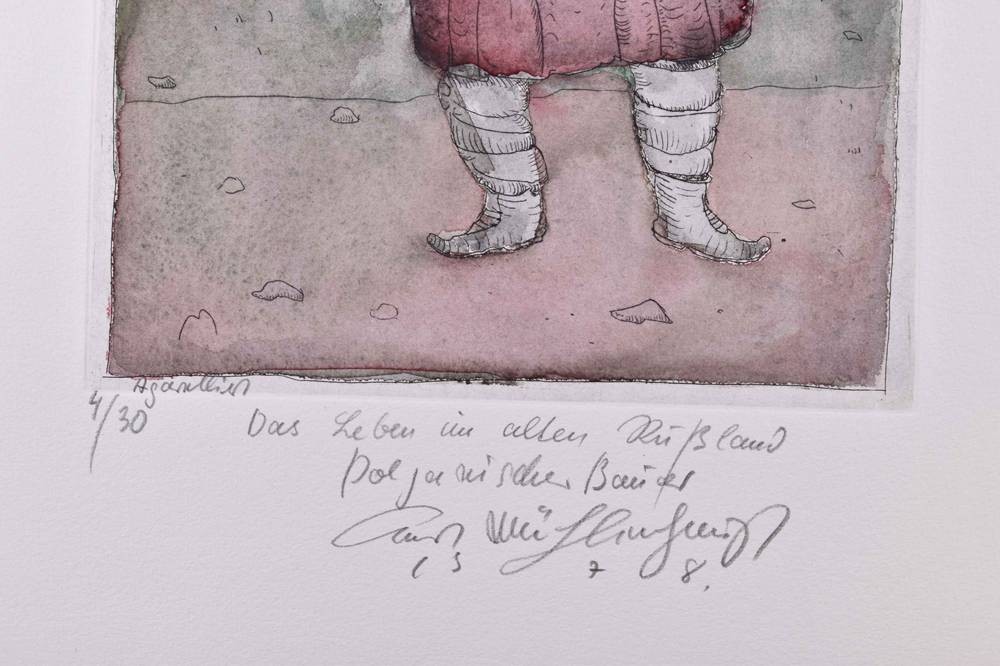 Aquarelliert
4/30
Das Leben im alten Rußland
Poljanischer Bauer
1978.